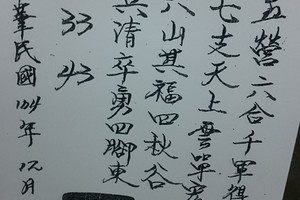 五營六合千軍得
七支天上雲單
八山其福四秋谷
兵清卒勇四腳東
33 43
華民國104年12月